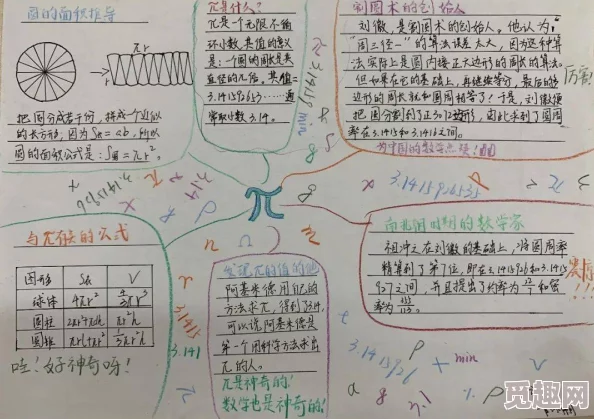 圆的面积推导
πr
r
把圆分成若干份，拼成个近似
的长方形，因为S长=ab，所以
圆的面积公式是：S圆=πr²。
π是什么？
π是一个无限不循
环小数，其值的含义
是：一个圆的周长是其
直径的几倍，其值=
3.141592653……通
常取小数3.14。
割圆术的创始人
刘徽，是割圆术的创始人。他认为，
"周三径一"的算法误差太大，因为这种算
法实际上是圆内接正六边形的周长的算法。
但如果在它的基础上，再继续等分，最后的多
边形的周长就和圆周相等了！于是，刘徽便
把圆分割到了正3072边形，因此求到了圆周
率在3.1415和3.1416之间。
为中国的数学点赞！
厉害！
π
3.1415916535
与π有关的公式
图形 S表 V
球体 4πr² 4/3πr³
圆柱 2πr²+πdh πr²h
圆锥 πr²+πrl 1/3πr²h
哇！好神奇呀！
3.1415
3.141
发现π的值的他
阿基米德用几何的
方法求π，得到了3.14，
可以说阿基米德是
第一个用科学方法求出
π的人。
π是神奇的！
数学也是神奇的！
南北朝时期的数学家
祖冲之在刘徽的基础上，将圆周率
精算到了第7位，即在3.1415926和3.1415
927之间，并且提出了约率为22/7和密
率为355/113。
3.1415926
min
觅趣网